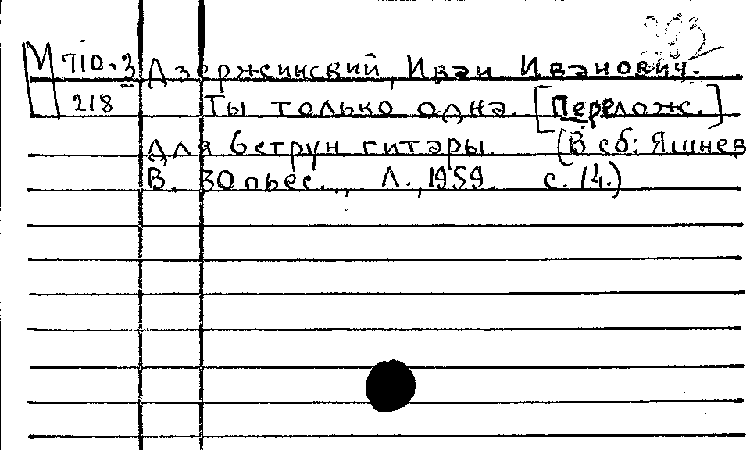 М 710.3 Дзержинский, Иван Иванович.
218 Ты только одна. [Перелож.]
для 6 струн гитары. (В сб: Яшнев
В. 30 пьес..., Л., 1959. с. 14.)